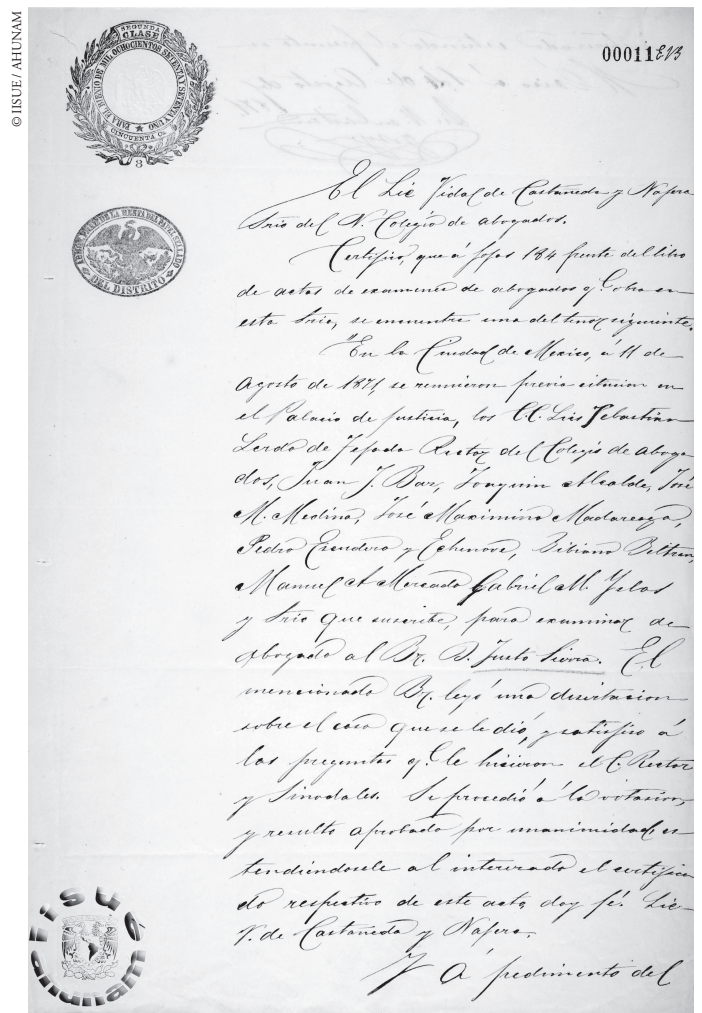 © IISUE / AHUNAM
SEGUNDA
CLASE
PARA EL BIENIO DE MIL OCHOCIENTOS SETENTA Y SETENTA Y UNO
CINCUENTA Cs.
3
00011
DEL DISTRITO
El Lic Vidal de Castañeda y Najera
Srio del N. Colegio de abogados.
Certifico, que á fojas 184 frente del libro
de actas de examenes de abogados q.e obra en
esta Sria, se encuentra una del tenor siguiente.
"En la Ciudad de Mexico, á 11 de
Agosto de 1871, se reunieron previa citacion en
el Palacio de Justicia, los C.C. Lics Sebastian
Lerdo de Tejada Rector del Colegio de aboga-
dos, Juan J. Baz, Joaquin Alcalde, José
M. Medina, José Maximino Madareaga,
Pedro Escudero y Echenove, Bibiano Beltran,
Manuel A Mercado Gabriel M. Yslas
y Srio que suscribe, para examinar de
Abogado al Br. D. Justo Sierra. El
mencionado Br. leyó una disertacion
sobre el caso que se le dió, y satisfizo á
las preguntas q.e le hicieron el C. Rector
y Sinodales. Se procedió á la votacion,
y resultó aprobado por unanimidad, es-
tendiéndosele al interesado el certifica-
do respectivo de este acto, doy fé. Lic-
V. de Castañeda y Najera.
Y Á pedimento del
iisue
ahunam